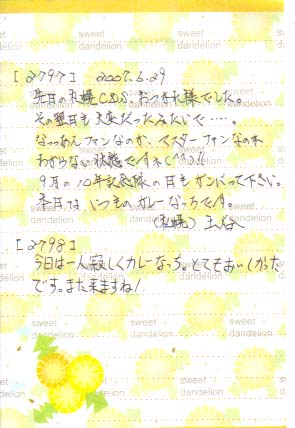 sweet dandelion
[2797] 2007.6.29
昨日の札幌CDS、おつかれ様でした。
その翌日も大変だったみたいで‥‥。
なっつあんファンなのか、マスターファンなのか
わからない状態ですネ(^^)!!
9月の10年記念隊の日もガンバって下さい。
本日はいつものカレーなっちです。
(札幌)
[2798]
今日は一人寂しくカレーなっち。とてもおいしかった
です。また来ますね!
sweet dandelion